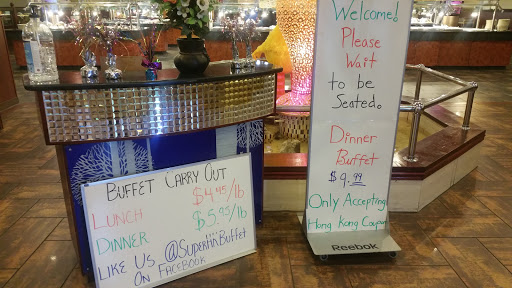 Welcome!
Please
Wait
to be
Seated.
Dinner
Buffet
$9.99
Only Accepting
Hong Kong Coupon
Reebok
BUFFET CARRY OUT
LUNCH $4.45/lb
DINNER $5.95/lb
LIKE US @SuperHiBuffet
ON FACEBOOK